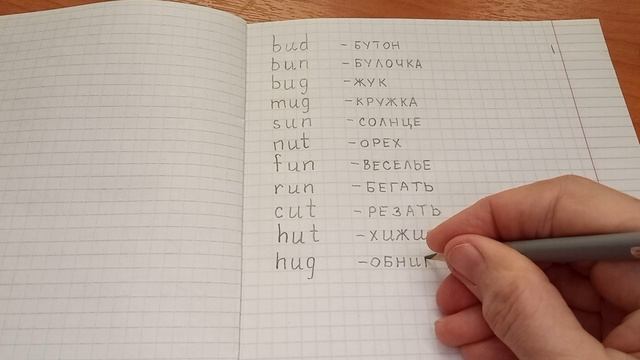 bud - БУТОН
bun - БУЛОЧКА
bug - ЖУК
mug - КРУЖКА
sun - СОЛНЦЕ
nut - ОРЕХ
fun - ВЕСЕЛЬЕ
run - БЕГАТЬ
cut - РЕЗАТЬ
hut - ХИЖИ
hug - ОБНИ